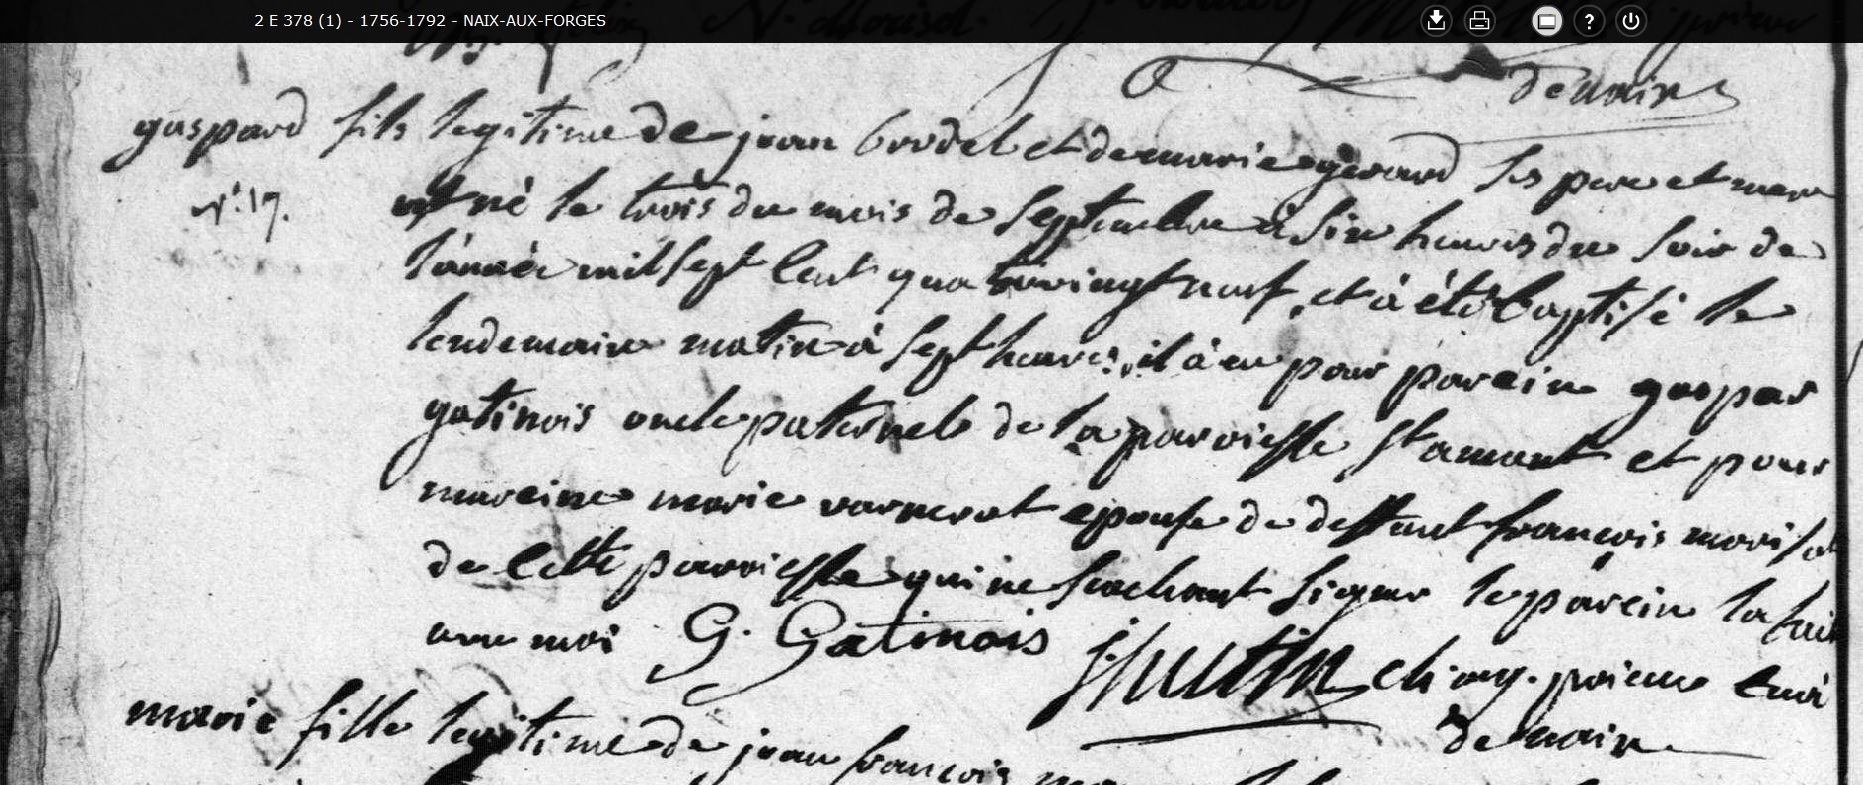 2 E 378 (1) - 1756-1792 - NAIX-AUX-FORGES
de naix
gaspard fils legitime de jean brodel et de marie gerard ses pere et mere
n°: 17. est né le trois du mois de Septembre à six heures du soir de
l'année mil sept cent quatrevingt neuf, et à été baptisé le
lendemain matin à sept heures, il à eu pour parein gaspar
gatinois oncle paternele de la paroisse st amant et pour
mareine marie varnerot epouse de deffunt françois morisot
de cette paroisse qui ne sachant signer le parein la fait
avec moi G. Gatinois J. hutin ch. reg. prieur curé
de naix
marie fille legitime de jean francois